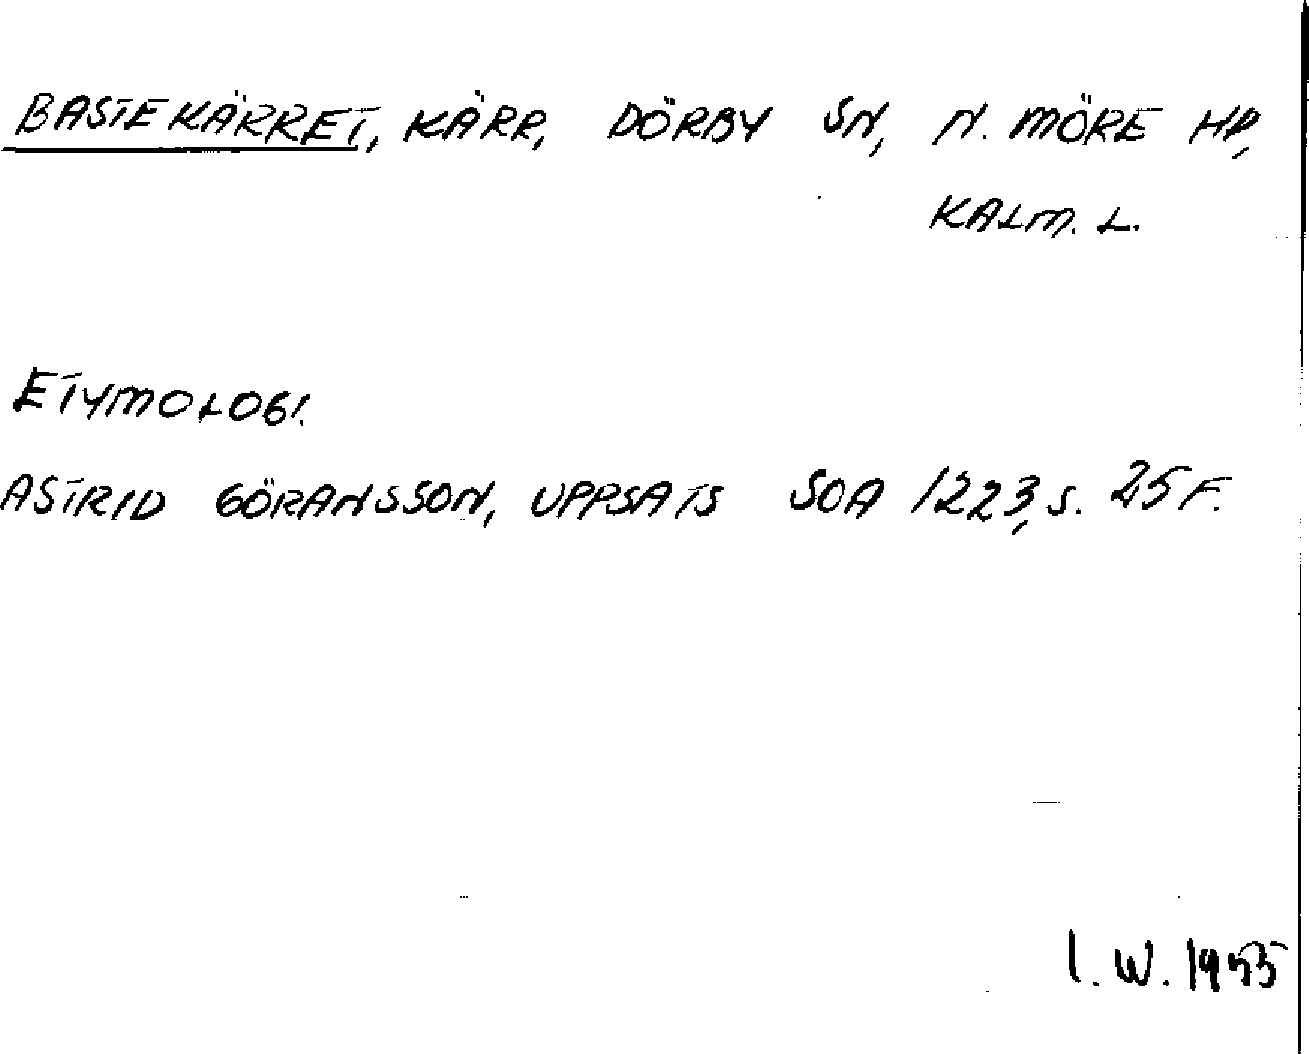 BASTEKÄRRET, KÄRR, DÖRBY SN, N. MÖRE HD,
KALM. L.
ETYMOLOGI.
ASTRID GÖRANSSON, UPPSATS SOA 1223, S. 25 F.
I. W. 1955